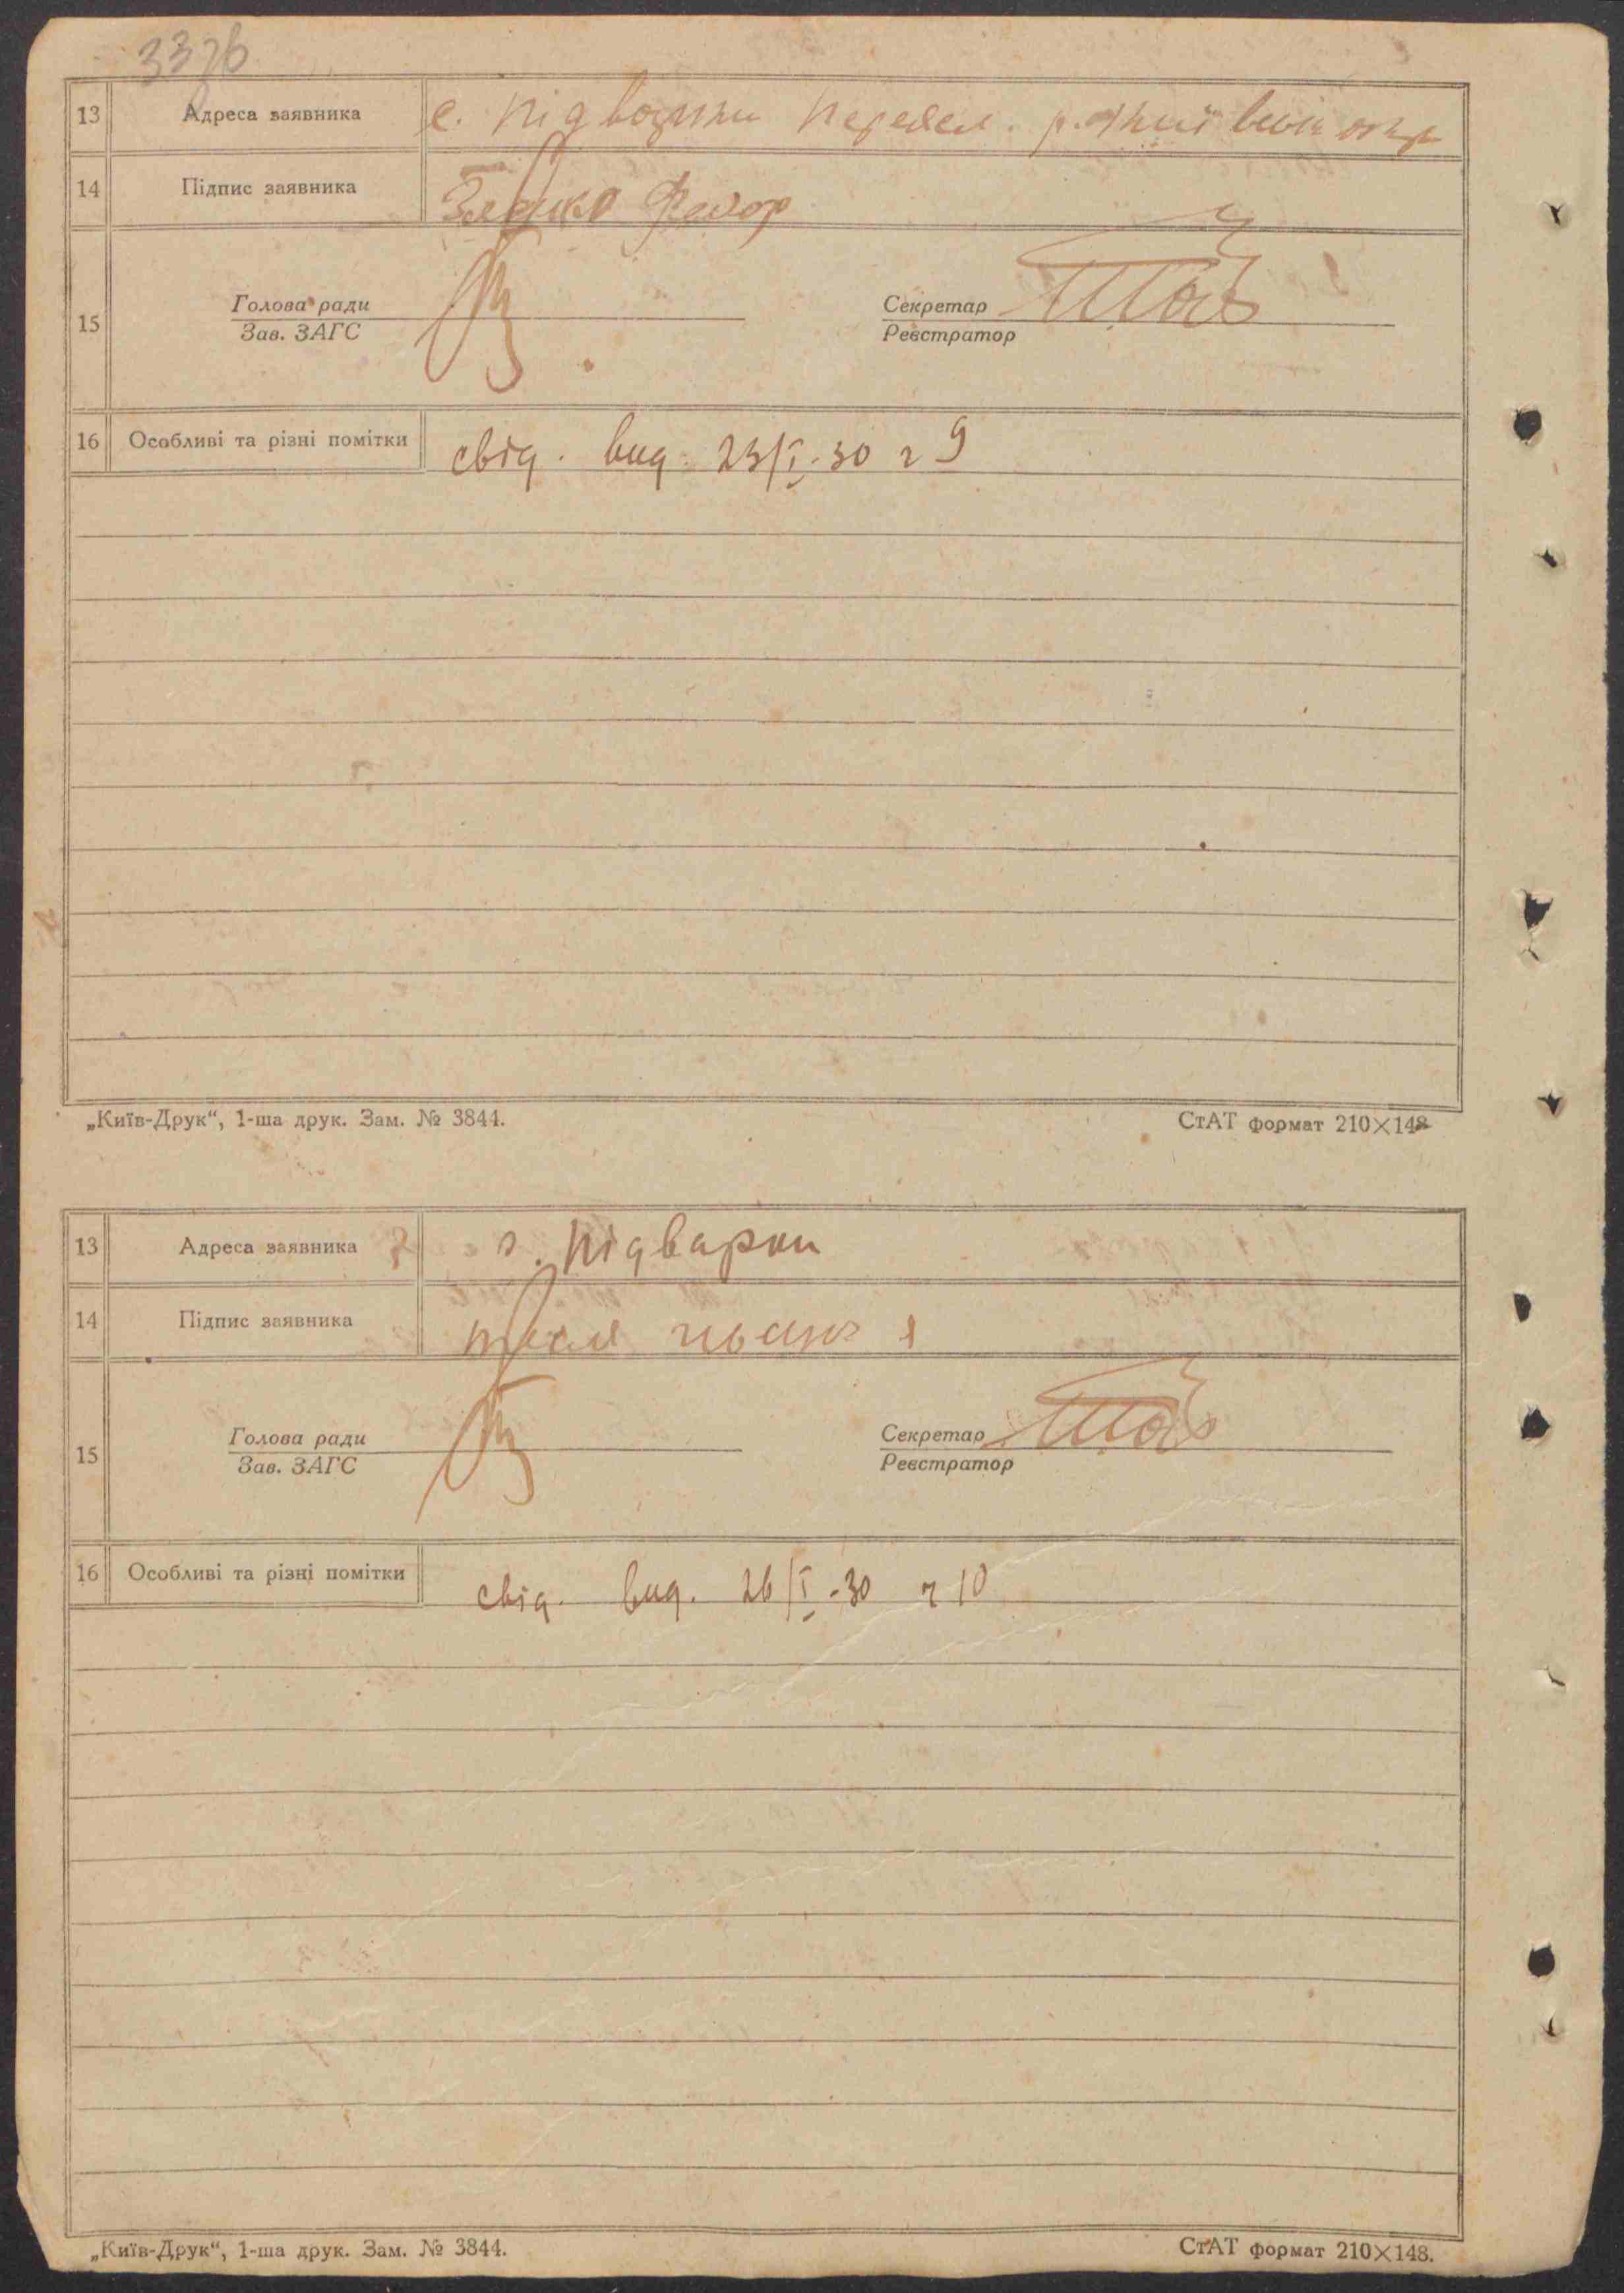 13 Адреса заявника с.
14 Підпис заявника Федор
15 Голова ради
Зав. ЗАГС
Секретар
Реєстратор
16 Особливі та різні помітки свід. вид. 23/I-30 ч 9
„Київ-Друк“, 1-ша друк. Зам. № 3844. СтАТ формат 210×148
13 Адреса заявника с. Підварки
14 Підпис заявника
15 Голова ради
Зав. ЗАГС
Секретар
Реєстратор
16 Особливі та різні помітки свід. вид. 26/I-30 ч 10
„Київ-Друк“, 1-ша друк. Зам. № 3844. СтАТ формат 210×148.